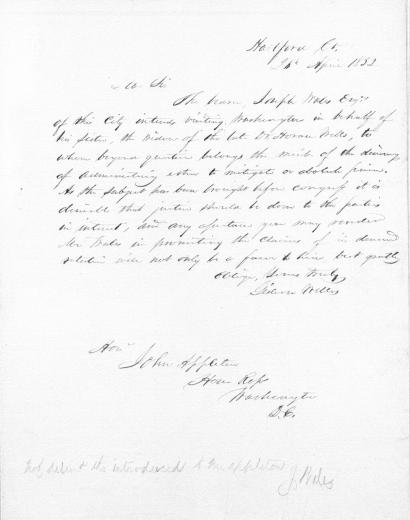 Hartford Ct.
April 1852
Dr Sir
The bearer, Joseph Wales Esqr
of this City intends visiting Washington in behalf of
his Sister, the widow of the late Dr Horace Wells to
whom beyond question belongs the merit of the discovery
of administering ether to mitigate or
As the subject has been brought before congress it is
desirable that justice should be done to the parties
in interest, and any assistance you may render
Mr Wales in promoting the claims of
relative will not only be a favor to him, but greatly
oblige, Yours truly
Gideon Welles
Hon
John Appleton
House Reps
Washington
D.C.
introduced to Mr Appleton
J Wales